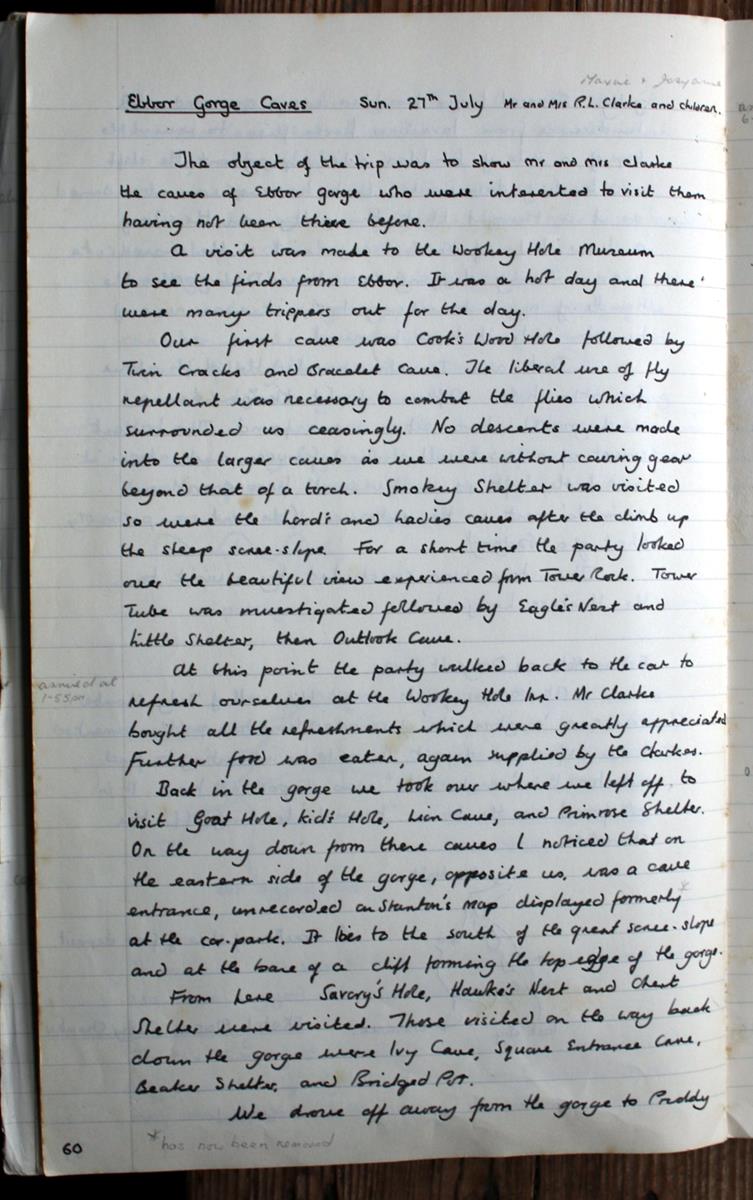 Marne + Josyanne
Ebbor Gorge Caves Sun. 27th July Mr and Mrs R.L. Clarke and children.
The object of the trip was to show Mr and Mrs Clarke
the caves of Ebbor gorge who were interested to visit them
having not been there before.
A visit was made to the Wookey Hole Museum
to see the finds from Ebbor. It was a hot day and there
were many trippers out for the day.
Our first cave was Cook's Wood Hole followed by
Twin Cracks and Bracelet Cave. The liberal use of fly
repellant was necessary to combat the flies which
surrounded us ceasingly. No descents were made
into the larger caves as we were without caving gear
beyond that of a torch. Smokey Shelter was visited
so were the Lord's and Ladies caves after the climb up
the steep scree-slope. For a short time the party looked
over the beautiful view experienced from Tower Rock. Tower
Tube was investigated followed by Eagle's Nest and
Little Shelter, then Outlook Cave.
At this point the party walked back to the car to
arrived at
1-55pm
refresh ourselves at the Wookey Hole Inn. Mr Clarke
bought all the refreshments which were greatly appreciated
Further food was eaten, again supplied by the Clarkes.
Back in the gorge we took over where we left off to
visit Goat Hole, Kid's Hole, Lion Cave, and Primrose Shelter.
On the way down from these caves I noticed that on
the eastern side of the gorge, opposite us, was a cave
entrance, unrecorded on Stanton's map displayed formerly*
at the car-park. It lies to the south of the great scree-slope
and at the base of a cliff forming the top edge of the gorge.
From here Savory's Hole, Hawke's Nest and Chert
Shelter were visited. Those visited on the way back
down the gorge were Ivy Cave, Square Entrance Cave,
Beaker Shelter, and Bridged Pot.
We drove off away from the gorge to Priddy
*has now been removed
60